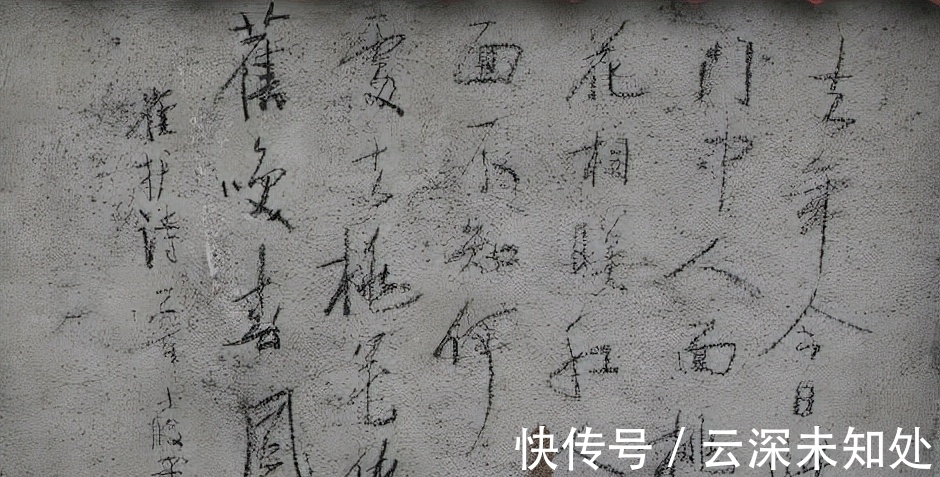 去年今日
门中人面桃
花相映红人
面不知何
處去桃花依
舊咲春風
崔护诗
快传号 / 云深未知处